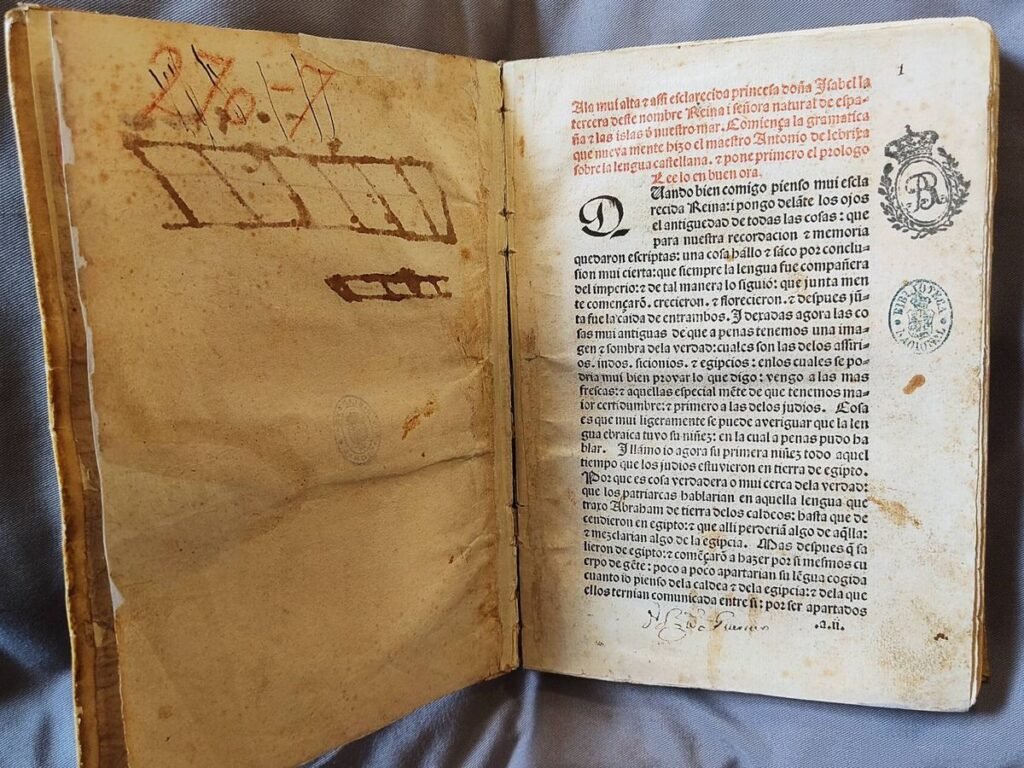 276.-7
1
Ala mui alta ⁊ assi esclarecida princesa doña Isabel la
tercera deste nombre Reina i señora natural de espa-
ña ⁊ las islas õ nuestro mar. Comiença la gramatica
que nueva mente hizo el maestro Antonio de lebrixa
sobre la lengua castellana. ⁊ pone primero el prologo
Lee lo en buen ora.
QUando bien comigo pienso mui escla
recida Reina: i pongo delãte los ojos
el antiguedad de todas las cosas: que
para nuestra recordacion ⁊ memoria
quedaron escriptas: una cosa hállo ⁊ sáco por conclu-
sion mui cierta: que siempre la lengua fue compañera
del imperio: ⁊ de tal manera lo siguió: que junta men
te començarõ. crecieron. ⁊ florecieron. ⁊ despues jũ-
ta fue la caida de entrambos. I dexadas agora las co
sas mui antiguas de que a penas tenemos una ima-
gen ⁊ sombra dela verdad: cuales son las delos assiri-
os. indos. sicionios. ⁊ egipcios: enlos cuales se po-
dria mui bien provar lo que digo: vengo a las mas
frescas: ⁊ aquellas especial mẽte de que tenemos ma-
ior certidumbre: ⁊ primero a las delos judios. Cosa
es que mui ligeramente se puede averiguar que la len
gua ebraica tuvo su niñez: en la cual a penas pudo ha
blar. I llamo io agora su primera niñez todo aquel
tiempo que los judios estuvieron en tierra de egipto.
Por que es cosa verdadera o mui cerca dela verdad:
que los patriarcas hablarian en aquella lengua que
traxo Abraham de tierra delos caldeos: hasta que de
cendieron en egipto: ⁊ que alli perderiã algo de aq̃lla:
⁊ mezclarian algo de la egipcia. Mas despues q̃ sa
lieron de egipto: ⁊ començarõ a hazer por si mesmos cu
erpo de gẽte: poco a poco apartarian su lẽgua cogida
cuanto io pienso dela caldea ⁊ dela egipcia: ⁊ dela que
ellos ternian comunicada entre si: por ser apartados
.a.ii.
BR
BIBLIOTECA
NACIONAL